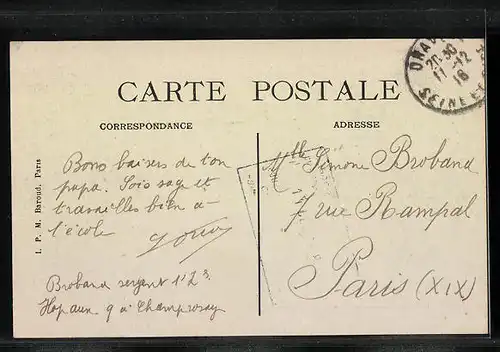 CARTE POSTALE
CORRESPONDANCE
ADRESSE
Bons baisers de ton
papa. Sois sage et
travailles bien à
l'école
Broband sergent
à Champrosay
Mlle Simone Broband
7 rue Rampal
Paris (XIX)
DRAV
20 30
17-12
16
SEINE ET
I. P. M. Baroud, Paris